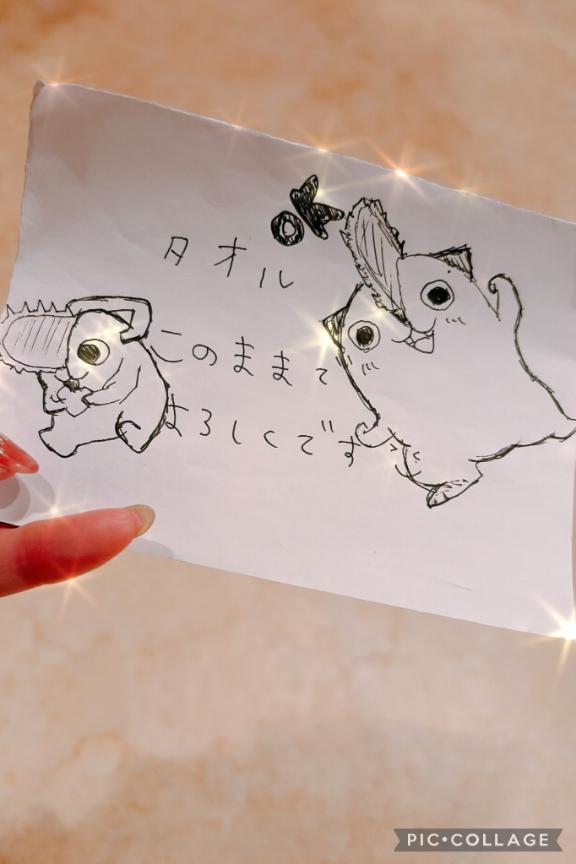 OK
タオル
このままで
よろしくです
PIC•COLLAGE